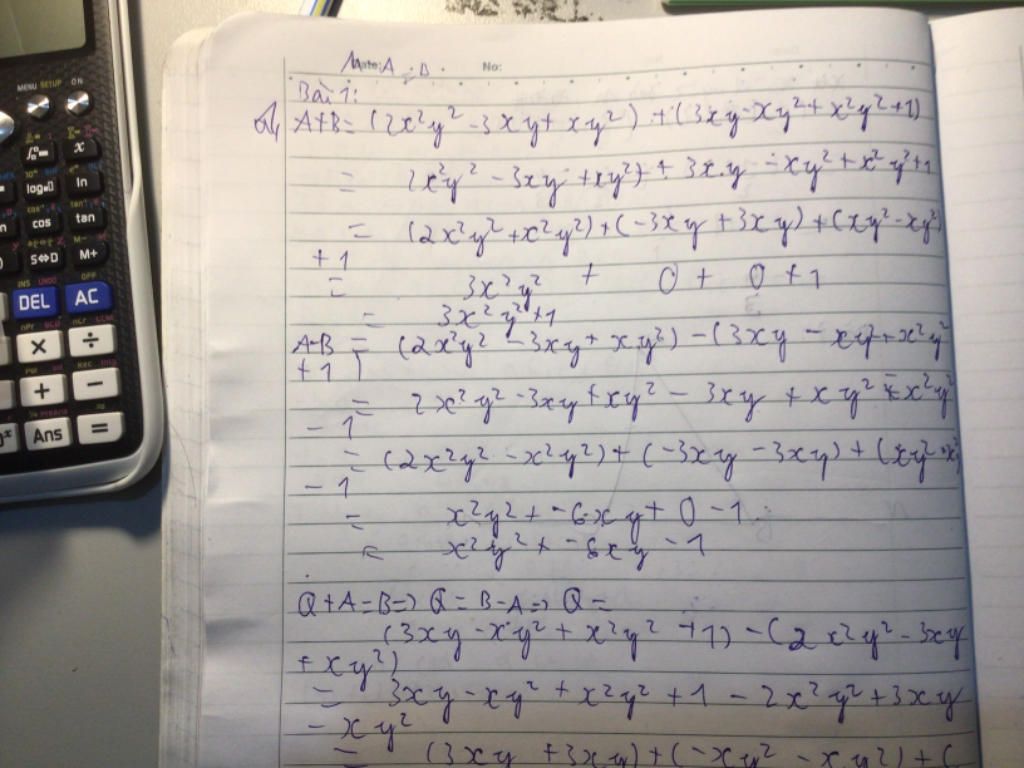 MENU SETUP ON
x
log ln
cos tan
S⇔D M+
DEL AC
× ÷
+ −
Ans =
No:
Bài 1:
A+B= (2x²y² -3xy+ xy²) + (3xy-xy²+x²y²+1)
= 2x²y² - 3xy +xy²) + 3xy - xy² + x²y²+1
= (2x²y² +x²y²) + (-3xy +3xy) + (xy²-xy²)
+1
= 3x²y² + 0 + 0 +1
= 3x²y²+1
A-B = (2x²y² -3xy+ xy²) -(3xy - xy²+x²y²
+1)
= 2x²y² -3xy +xy² - 3xy + xy² - x²y²
- 1
= (2x²y² -x²y²) + (-3xy -3xy) + (xy² +x
- 1
= x²y² + -6xy + 0 -1
= x²y² + -6xy -1
Q+A=B=> Q = B-A => Q =
(3xy -xy² + x²y² +1) -(2x²y² -3xy
+xy²)
= 3xy -xy² + x²y² +1 - 2x²y² +3xy
- xy²
= (3xy +3xy) + (-xy² -xy²) + (